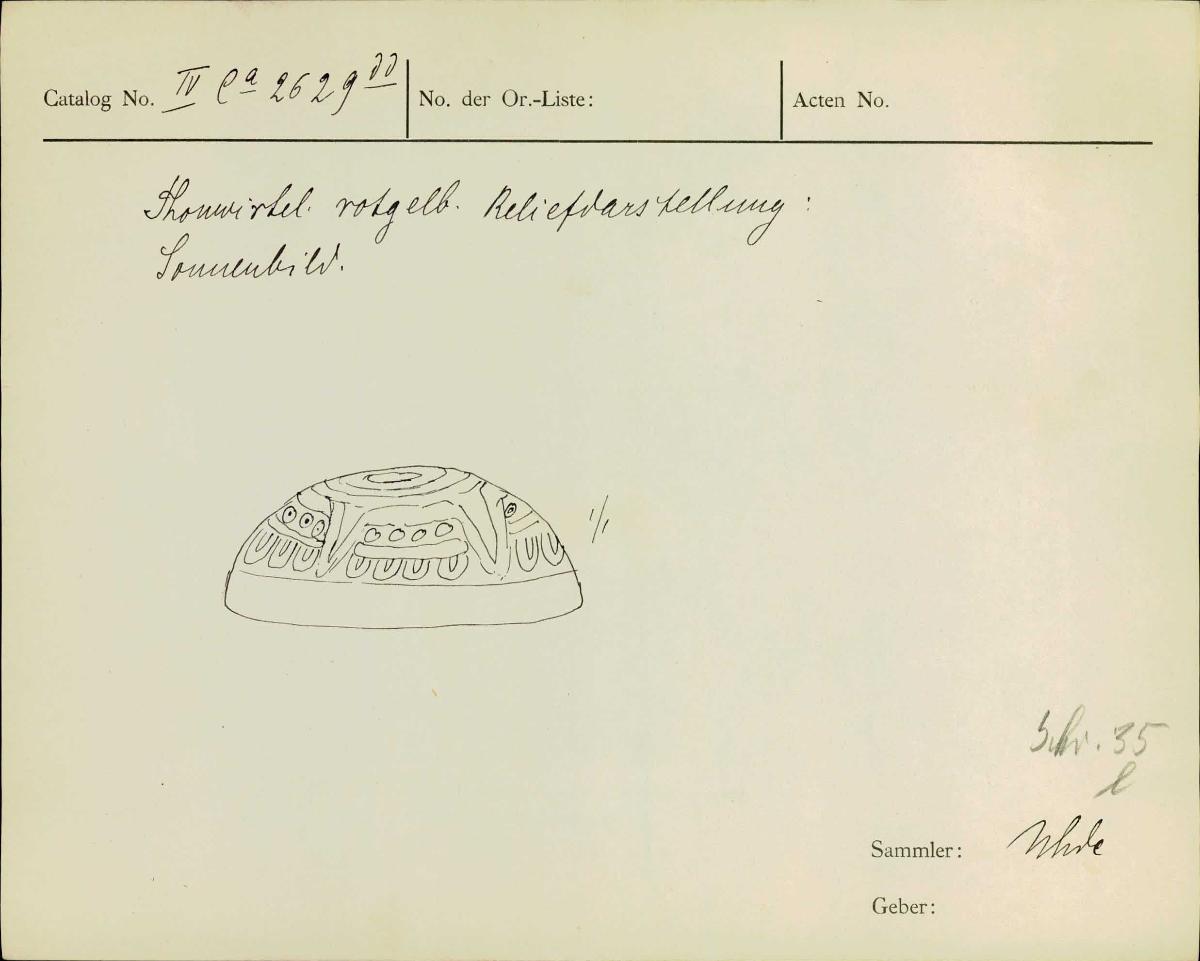 Catalog No. IV Ca 2629 dd No. der Or.-Liste: Acten No.
Thonwirtel. rotgelb. Reliefdarstellung:
Sonnenbild.
1/1
Schr. 35
l
Sammler: Uhde
Geber: